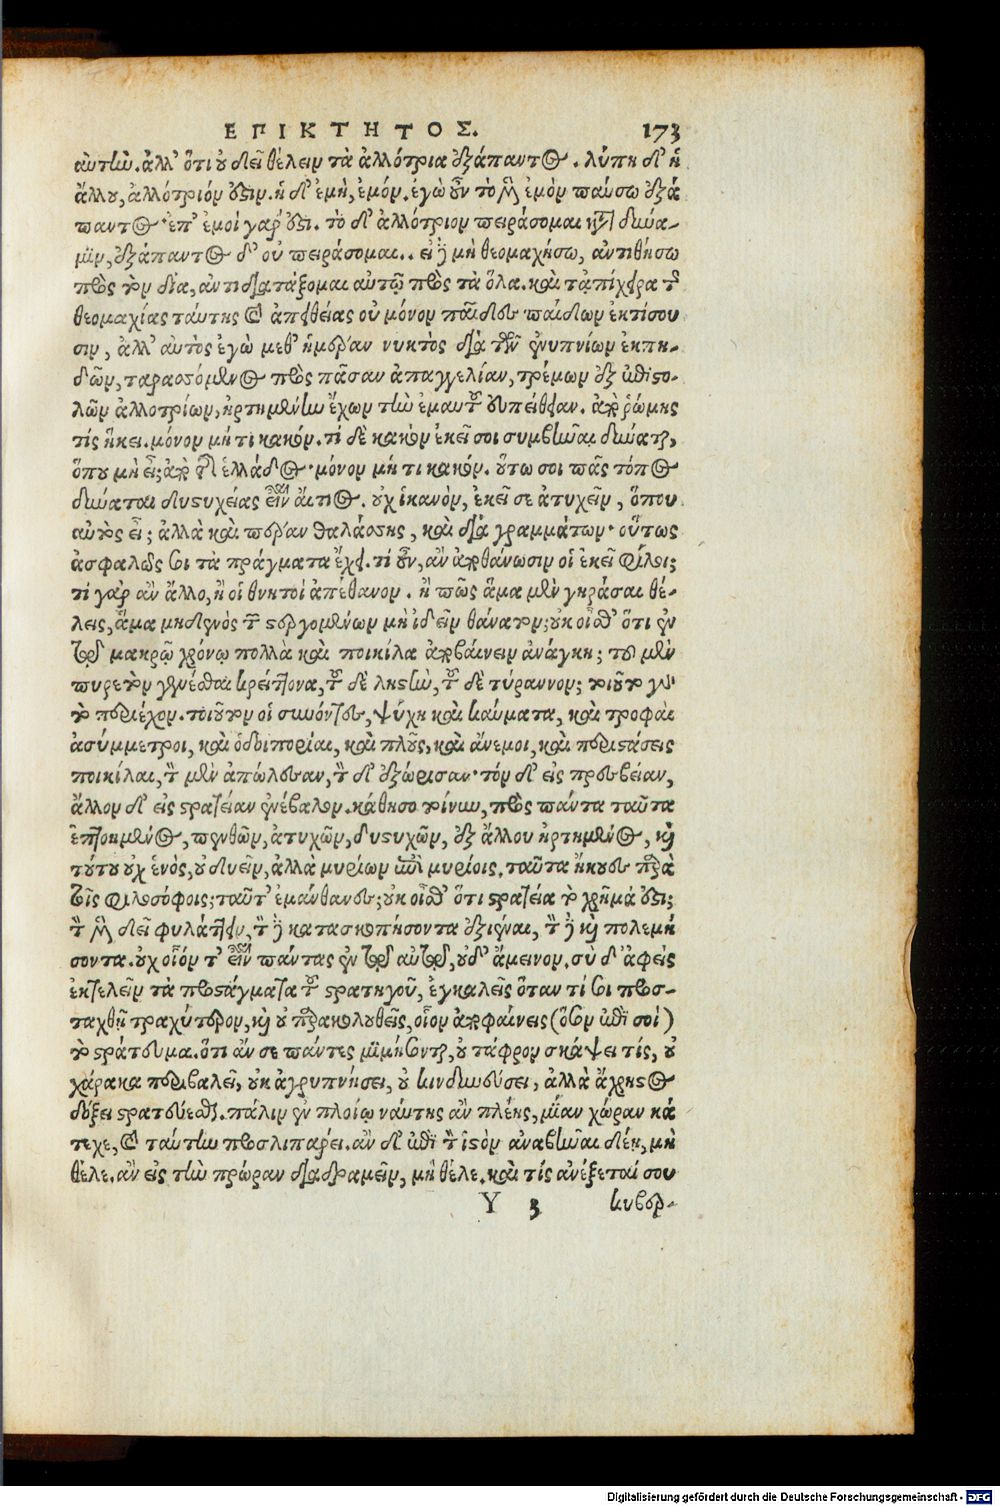 ΕΠΙΚΤΗΤΟΣ. 173
αὐτὴν. ἀλλ' ὅτι οὐ δεῖ θέλειν τὰ ἀλλότρια ἐξάπαντος. λύπη δ' ἡ
ἄλλου, ἀλλότριόν ἐστιν. ἡ δ' ἐμὴ, ἐμόν. ἐγὼ οὖν τὸ μὲν ἐμὸν παύσω ἐξά
παντος· ἐπ' ἐμοί γάρ ἐστι. τὸ δ' ἀλλότριον πειράσομαι κατὰ δύνα-
μιν, ἐξάπαντος δ' οὐ πειράσομαι.. εἰ δὲ μὴ θεομαχήσω, ἀντιθήσω
πρὸς τὸν δία, ἀντιδιατάξομαι αὐτῷ πρὸς τὰ ὅλα. καὶ τἀπίχειρα τῆς
θεομαχίας ταύτης καὶ ἀπειθείας οὐ μόνον παῖδες παίδων ἐκτίσου
σιν, ἀλλ' αὐτὸς ἐγὼ μεθ' ἡμέραν νυκτὸς διὰ τῶν ἐνυπνίων ἐκπη-
δῶν, ταρασσόμενος πρὸς πᾶσαν ἀπαγγελίαν, τρέμων ἐξ ἐπιστο-
λῶν ἀλλοτρίων, ἠρτημένην ἔχων τὴν ἐμαυτοῦ εὐπείθειαν. ἀπὸ ῥώμης
τίς ἥκει. μόνον μή τι κακόν. τί δὲ κακὸν ἐκεῖ σοι συμβῆναι δύναται,
ὅπου μὴ εἶ; ἀπὸ τῆς ἑλλάδος· μόνον μή τι κακόν. οὕτω σοι πᾶς τόπος
δύναται δυστυχείας εἶναι αἴτιος. οὐχ ἱκανὸν, ἐκεῖ σε ἀτυχεῖν, ὅπου
αὐτὸς εἶ; ἀλλὰ καὶ πέραν θαλάσσης, καὶ διὰ γραμμάτων· οὕτως
ἀσφαλῶς σοι τὰ πράγματα ἔχει. τί οὖν, ἂν ἀποθάνωσιν οἱ ἐκεῖ φίλοι;
τί γὰρ ἂν ἄλλο, ἢ οἱ θνητοὶ ἀπέθανον. ἢ πῶς ἅμα μὲν γηράσαι θέ-
λεις, ἅμα μηδενὸς τῶν στεργομένων μὴ ἰδεῖν θάνατον; οὐκ οἶσθ' ὅτι ἐν
τῷ μακρῷ χρόνῳ πολλὰ καὶ ποικίλα ἀποβαίνειν ἀνάγκη; τοῦ μὲν
πυρετὸν γενέσθαι κρείττονα, τοῦ δὲ λῃστὴν, τοῦ δὲ τύραννον; τοιοῦτον γὰρ
τὸ περιέχον. τοιοῦτον οἱ συνόντες, ψύχη καὶ καύματα, καὶ τροφαὶ
ἀσύμμετροι, καὶ ὁδοιπορίαι, καὶ πλοῦς, καὶ ἄνεμοι, καὶ περιστάσεις
ποικίλαι, τὸν μὲν ἀπώλεσαν, τὸν δ' ἐξώρισαν· τὸν δ' εἰς πρεσβείαν,
ἄλλον δ' εἰς στρατείαν ἐνέβαλον. κάθησο τοίνυν, πρὸς πάντα ταῦτα
ἐπτοημένος, πενθῶν, ἀτυχῶν, δυστυχῶν, ἐξ ἄλλου ἠρτημένος, καὶ
τούτου οὐχ ἑνὸς, οὐ δυεῖν, ἀλλὰ μυρίων ἐπὶ μυρίοις. ταῦτα ἤκουες παρὰ
τοῖς φιλοσόφοις; ταῦτ' ἐμάνθανες; οὐκ οἶσθ' ὅτι στρατεία τὸ χρῆμά ἐστι;
τὸν μὲν δεῖ φυλάττειν, τὸν δὲ κατασκοπήσοντα ἐξιέναι, τὸν δὲ καὶ πολεμή
σοντα. οὐχ οἷόν τ' εἶναι πάντας ἐν τῷ αὐτῷ, οὐδ' ἄμεινον. σὺ δ' ἀφεὶς
ἐκτελεῖν τὰ προστάγματα τοῦ στρατηγοῦ, ἐγκαλεῖς ὅταν τί σοι προσ-
ταχθῇ τραχύτερον, καὶ οὐ παρακολουθεῖς, οἷον ἀποφαίνεις (ὅσον ἐπὶ σοὶ)
τὸ στράτευμα. ὅτι ἄν σε πάντες μιμήσωνται, οὐ τάφρον σκάψει τίς, οὐ
χάρακα περιβαλεῖ, οὐκ ἀγρυπνήσει, οὐ κινδυνεύσει, ἀλλὰ ἄχρηστος
δόξει στρατεύεσθαι. πάλιν ἐν πλοίῳ ναύτης ἂν πλέῃς, μίαν χώραν κά
τεχε, καὶ ταύτην προσλιπάρει. ἂν δ' ἐπὶ τὸν ἱστὸν ἀναβῆναι δέῃ, μὴ
θέλε. ἂν εἰς τὴν πρώραν διαδραμεῖν, μὴ θέλε. καὶ τίς ἀνέξεταί σου
Y 3 κυβερ-
Digitalisierung gefördert durch die Deutsche Forschungsgemeinschaft - DFG